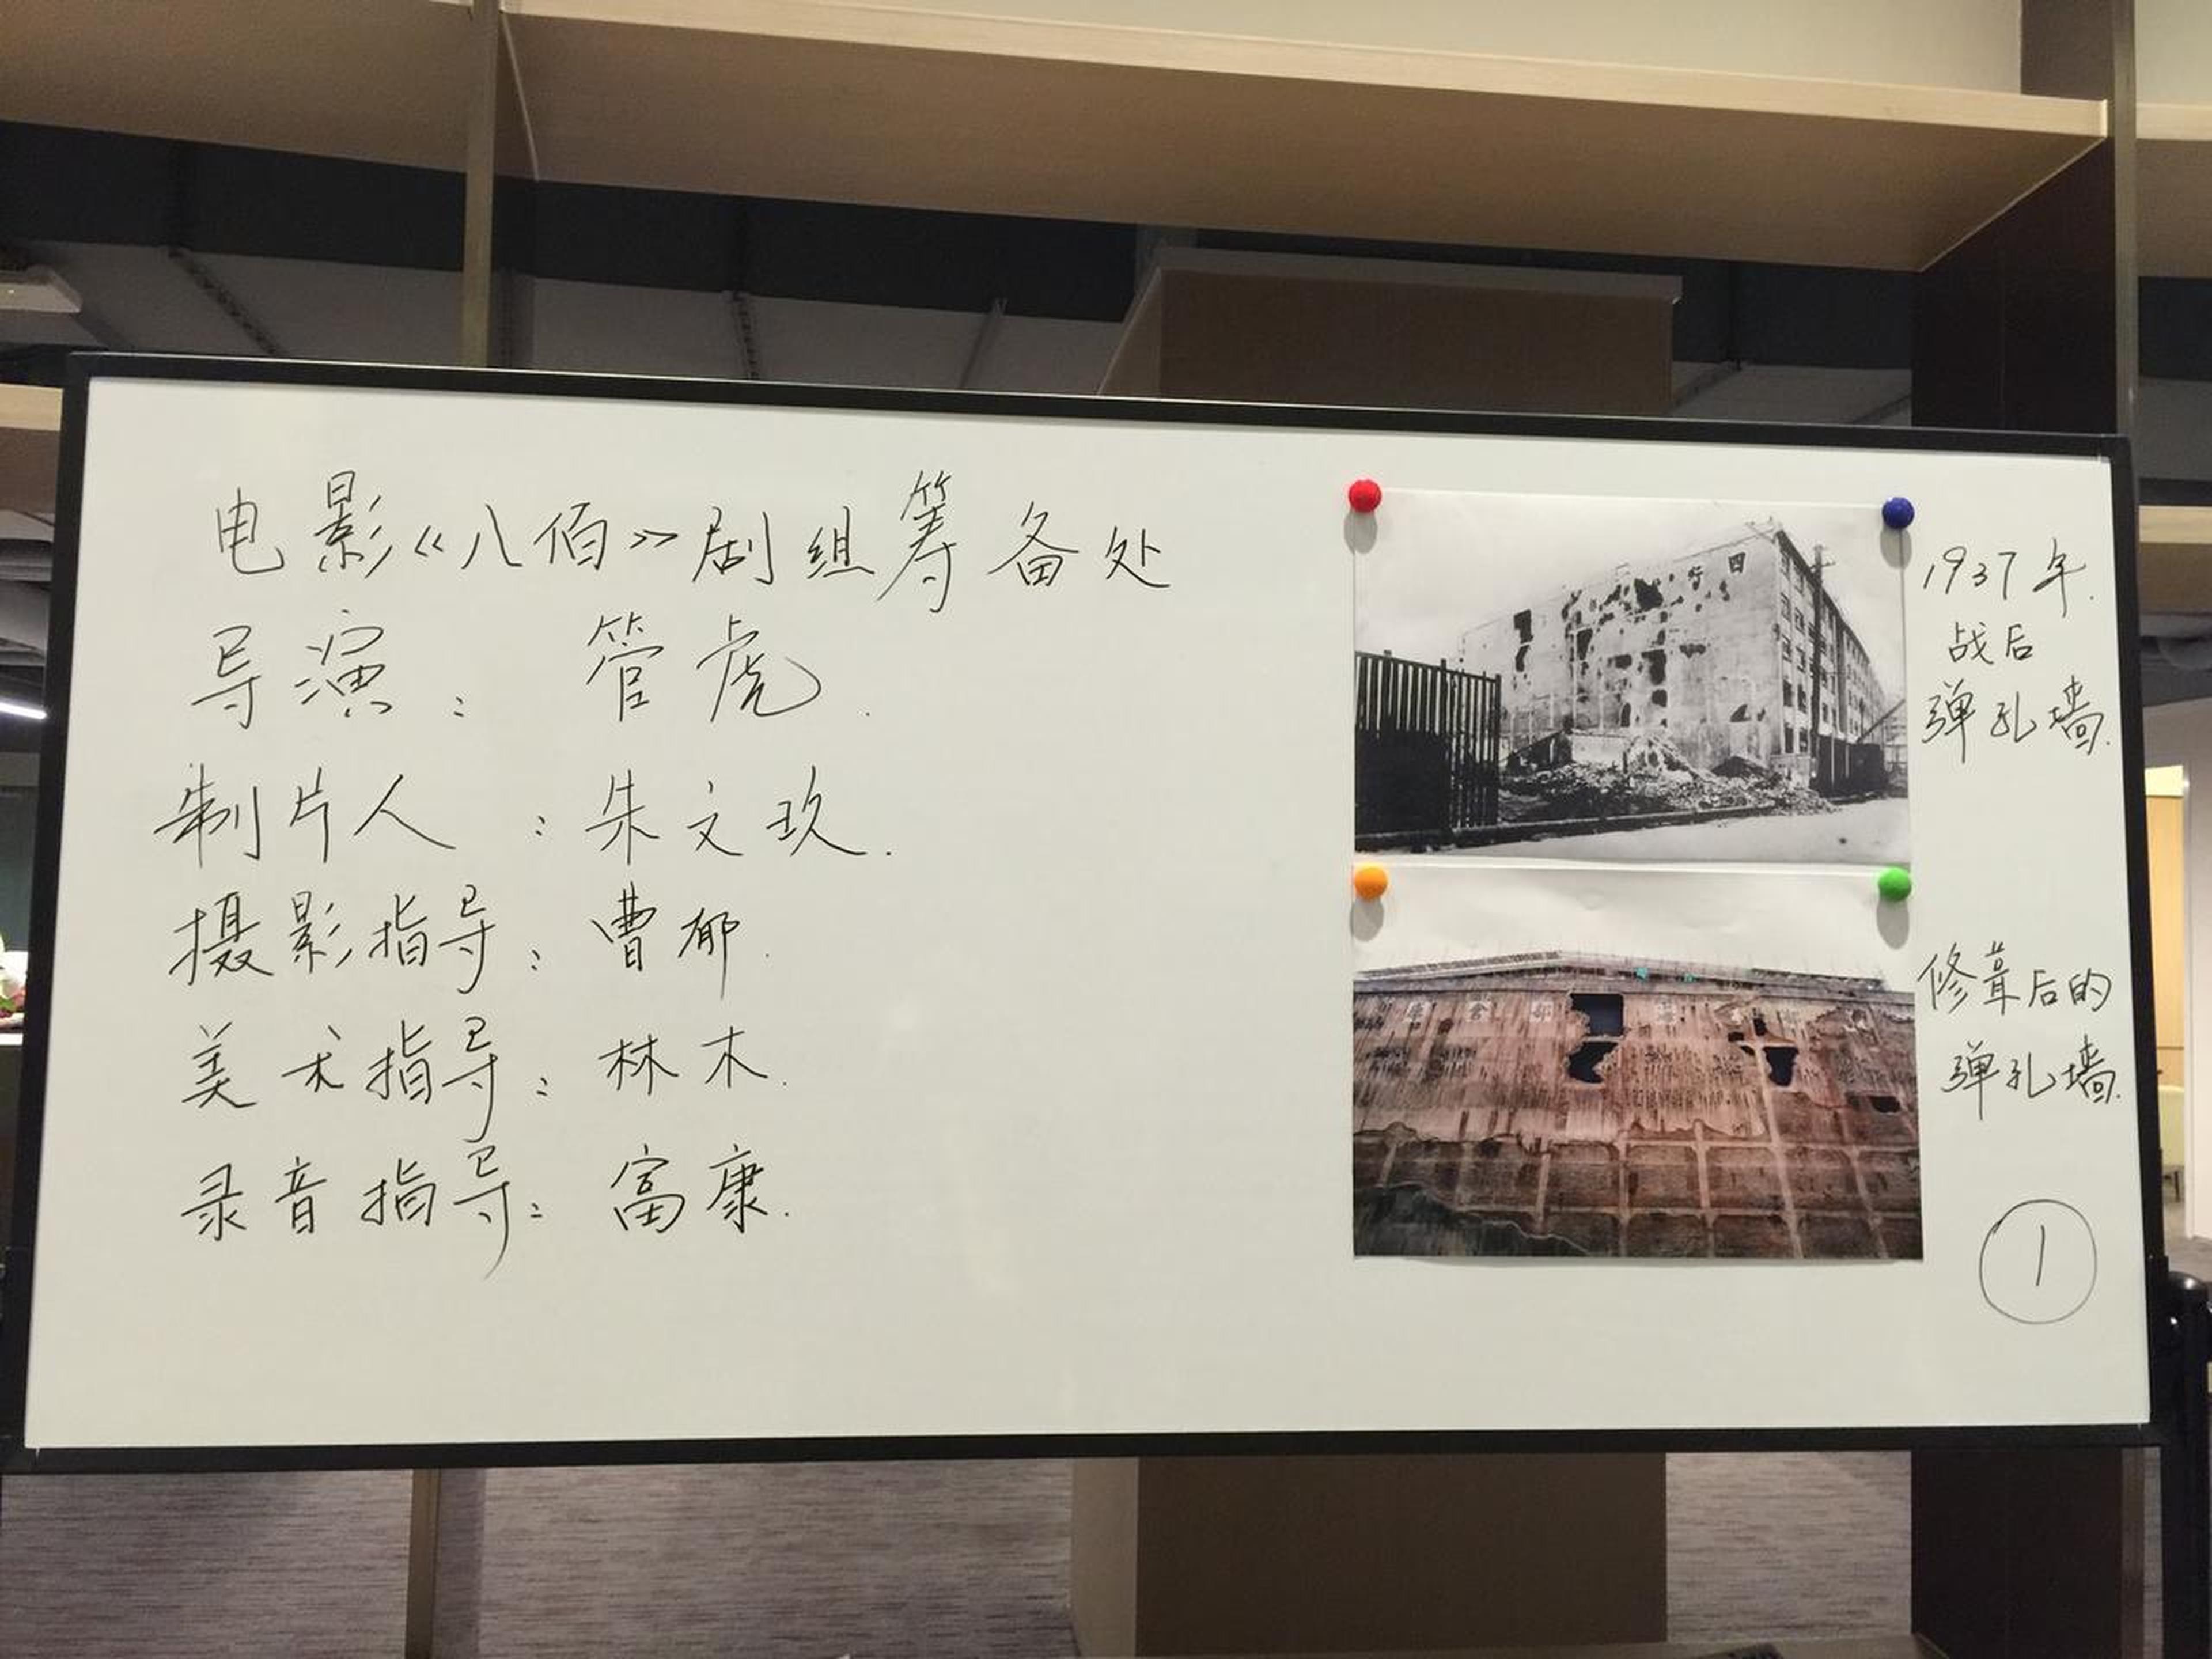 电影《八佰》剧组筹备处
导演：管虎.
制片人：朱文玖.
摄影指导：曹郁.
美术指导：林木.
录音指导：富康.
1937年.
战后
弹孔墙.
修葺后的
弹孔墙.
1
四行